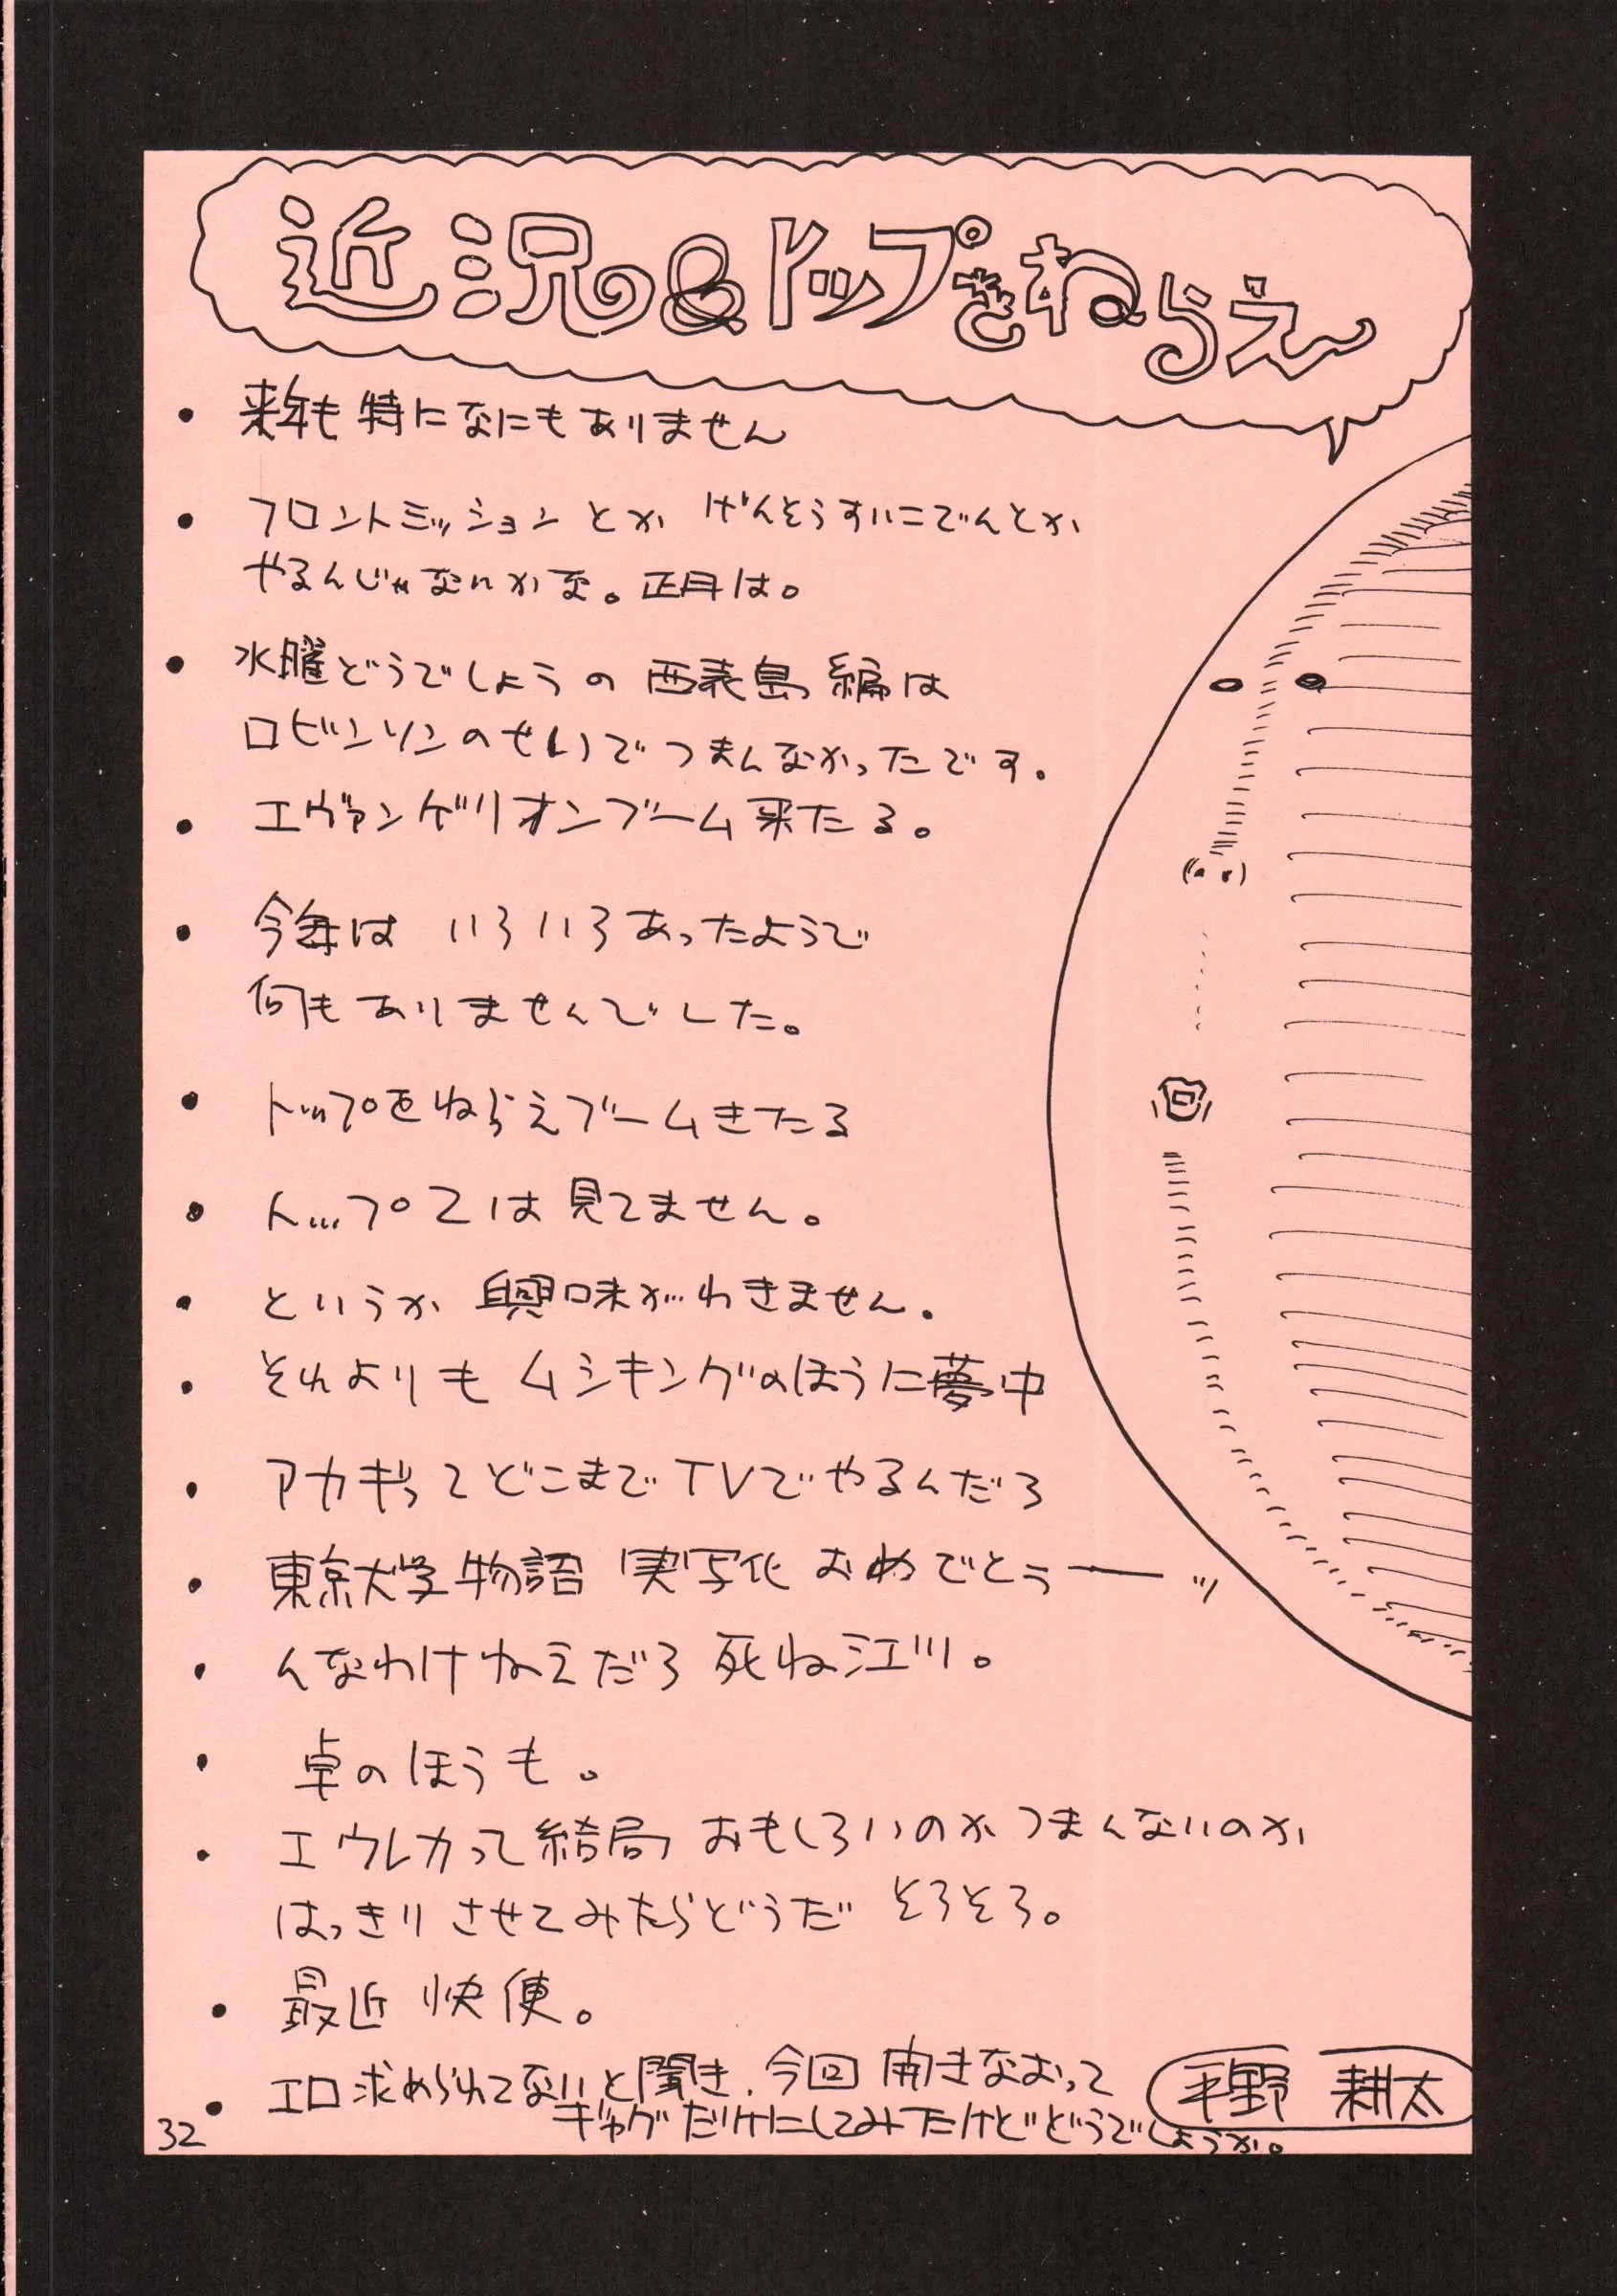 近況の&トップをねらえ
・来年も特になにもありません
・フロントミッションとか げんそうすいこでんとか
やるんじゃないかな。正月は。
・水曜どうでしょうの西表島編は
ロビンソンのせいでつまんなかったです。
・エヴァンゲリオンブーム来たる。
・今年は いろいろあったようで
何もありませんでした。
・トップをねらえブームきたる
・トップ2は見てません。
・というか 興味がわきません。
・それよりも ムシキングのほうに夢中
・アカギってどこまでTVでやるんだろ
・東京大学物語 実写化 おめでとうーッ
・んなわけねえだろ 死ね江川。
・卓のほうも。
・エウレカって結局 おもしろいのか つまんないのか
はっきりさせてみたらどうだ そろそろ。
・最近 快便。
・エロ求められてないと聞き、今回 開きなおって
ギャグだけにしてみたけどどうでしょうか。
平野 耕太
32